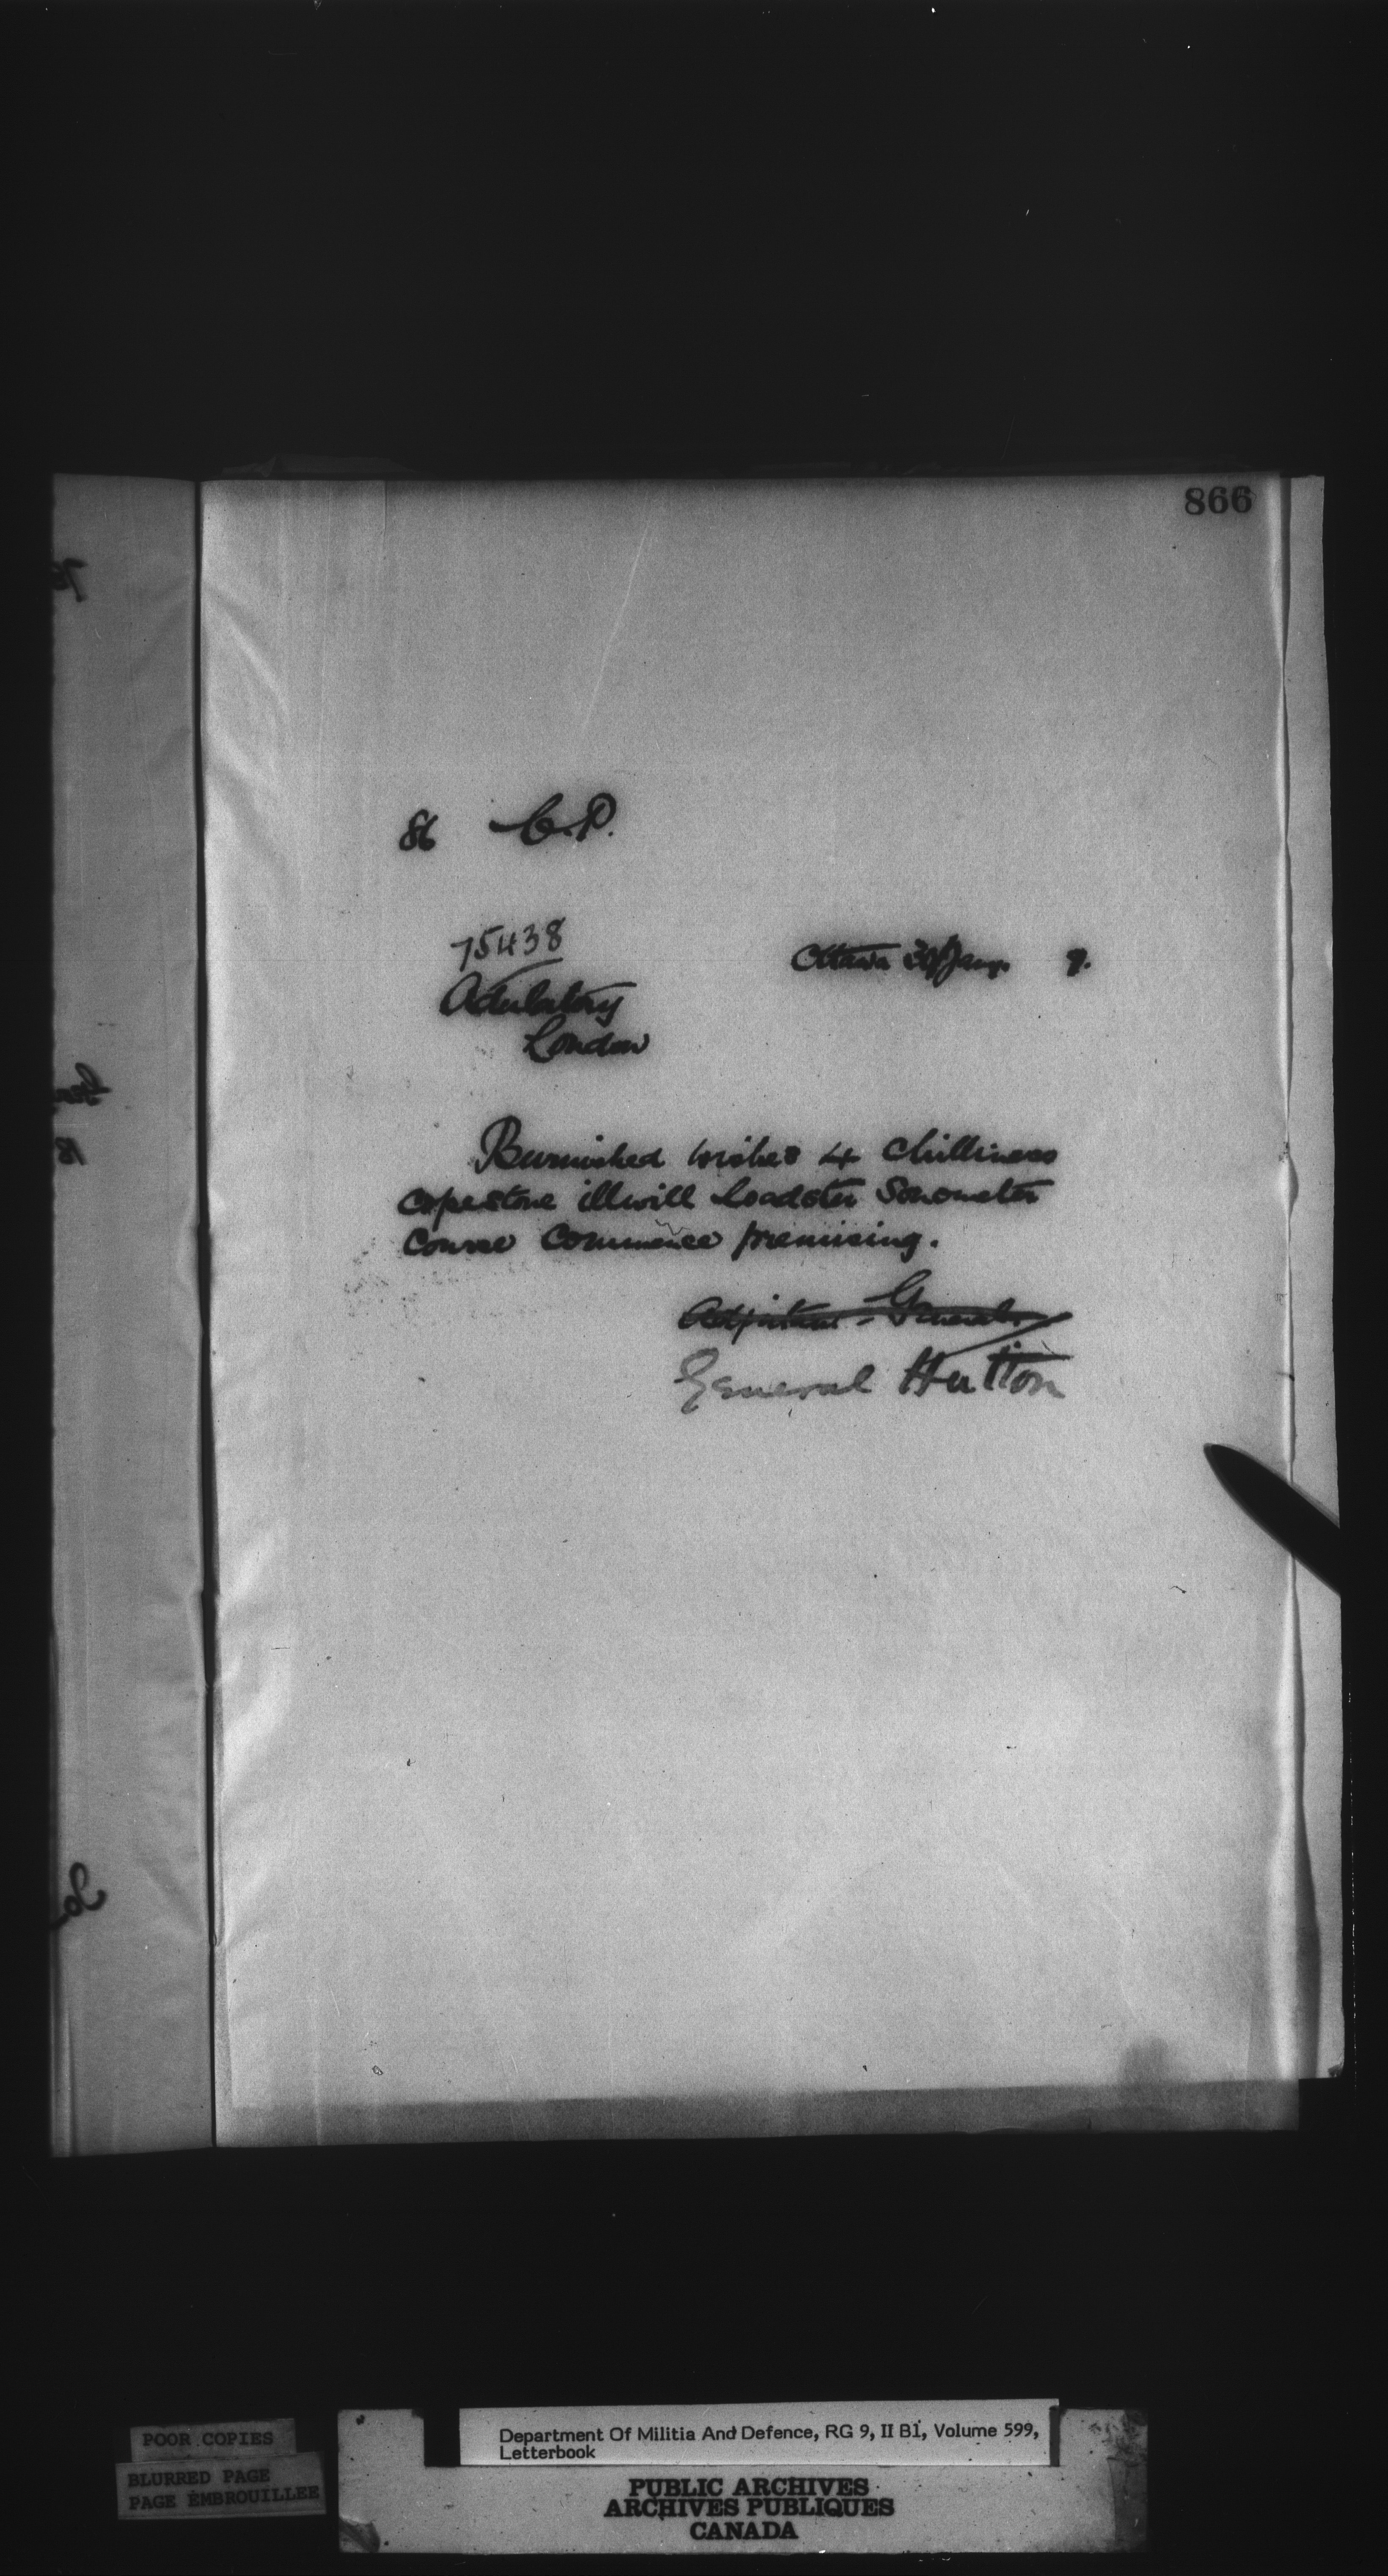 866
86 C.P.
75438
Ottawa 30 Jany. 9.
Adulatory
London
Burnished wishes 4 chilliness
copestone illwill loadster Sonometer
Course Commence premising.
Adjutant-General
General Hutton
POOR COPIES
BLURRED PAGE
PAGE EMBROUILLEE
Department Of Militia And Defence, RG 9, II B1, Volume 599,
Letterbook
PUBLIC ARCHIVES
ARCHIVES PUBLIQUES
CANADA